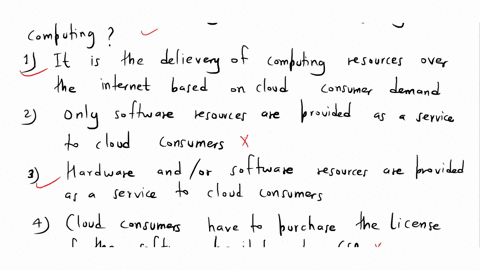 computing ?
1) It is the delievery of computing resources over
the internet based on cloud consumer demand
2) Only software resources are provided as a service
to cloud consumers X
3) Hardware and /or software resources are provided
as a service to cloud consumers
4) Cloud consumers have to purchase the license